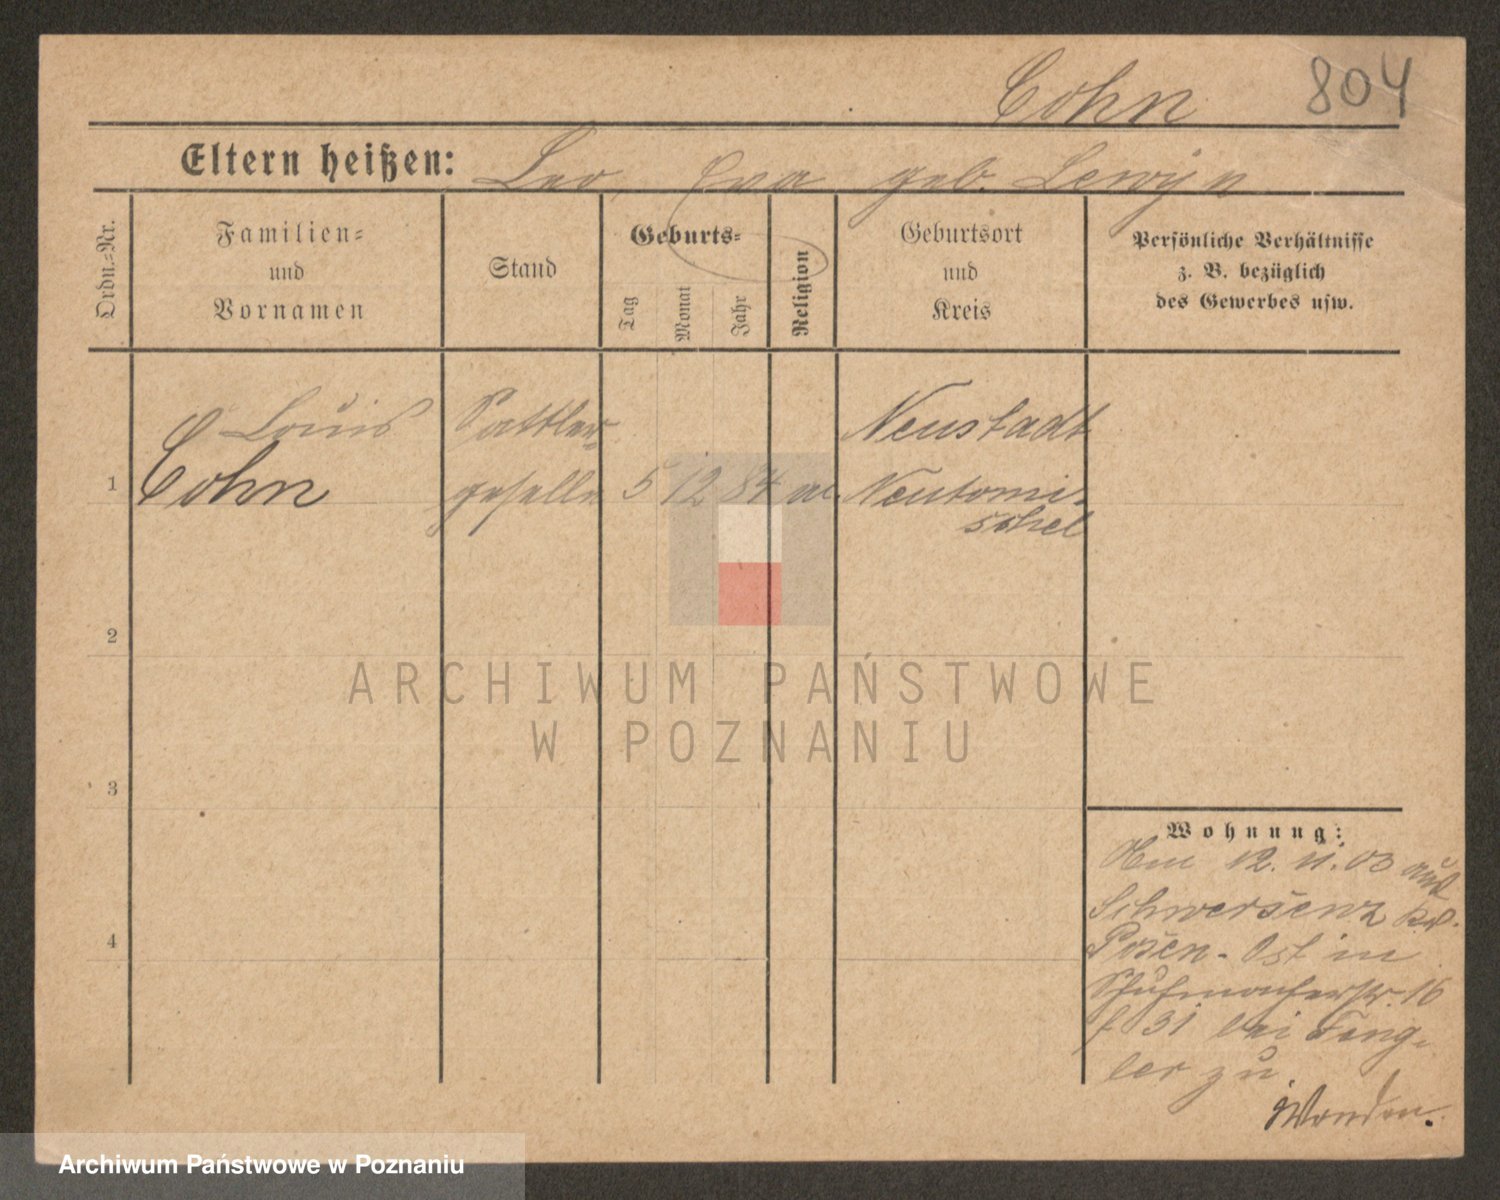 Cohn 804
Eltern heißen: Leo, Eva geb. Lewyn
Ordn.=Nr.
Familien=
und
Vornamen
Stand
Geburts=
Tag
Monat
Jahr
Religion
Geburtsort
und
Kreis
Persönliche Verhältnisse
z. B. bezüglich
des Gewerbes usw.
Louis Sattler= Neustadt
1 Cohn geselle 5 12 84 Neutomi-
schel
2
3
4
ARCHIWUM PAŃSTWOWE
W POZNANIU
Wohnung:
Am 12. 11. 03 aus
Schwersenz Kr.
Posen-Ost in
Schuhmacherstr. 16
31 bei
zu
Archiwum Państwowe w Poznaniu